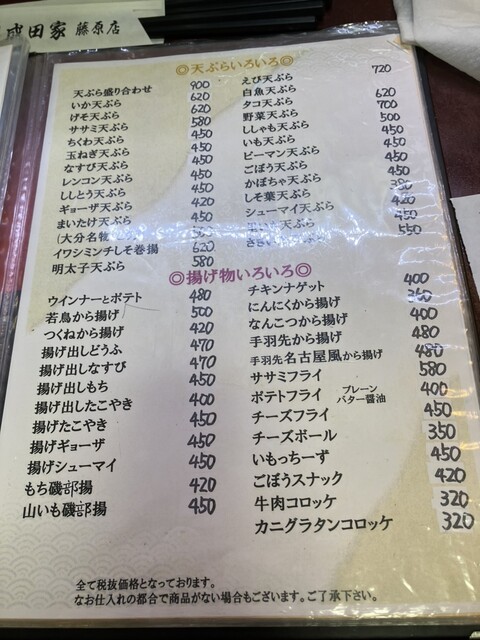 成田家 藤原店
◎天ぷらいろいろ◎
天ぷら盛り合わせ 900
いか天ぷら 620
げそ天ぷら 620
ササミ天ぷら 580
ちくわ天ぷら 450
玉ねぎ天ぷら 450
なすび天ぷら 450
レンコン天ぷら 450
ししとう天ぷら 450
ギョーザ天ぷら 420
まいたけ天ぷら 450
(大分名物
イワシミンチしそ巻揚 620
明太子天ぷら 580
えび天ぷら 720
白魚天ぷら 620
タコ天ぷら 700
野菜天ぷら 500
ししゃも天ぷら 450
いも天ぷら 450
ピーマン天ぷら 450
ごぼう天ぷら 450
かぼちゃ天ぷら 380
しそ葉天ぷら 420
シューマイ天ぷら 450
550
◎揚げ物いろいろ◎
ウインナーとポテト 480
若鳥から揚げ 500
つくねから揚げ 420
揚げ出しどうふ 470
揚げ出しなすび 470
揚げ出しもち 450
揚げ出したこやき 400
揚げたこやき 450
揚げギョーザ 450
揚げシューマイ 450
もち磯部揚 420
山いも磯部揚 450
チキンナゲット 400
にんにくから揚げ 360
なんこつから揚げ 400
手羽先から揚げ 480
手羽先名古屋風から揚げ 480
ササミフライ 580
ポテトフライ プレーン バター醤油 400
チーズフライ 450
チーズボール 350
いもっちーず 450
ごぼうスナック 420
牛肉コロッケ 320
カニグラタンコロッケ 320
全て税抜価格となっております。
なお仕入れの都合で商品がない場合もございます。ご了承下さい。